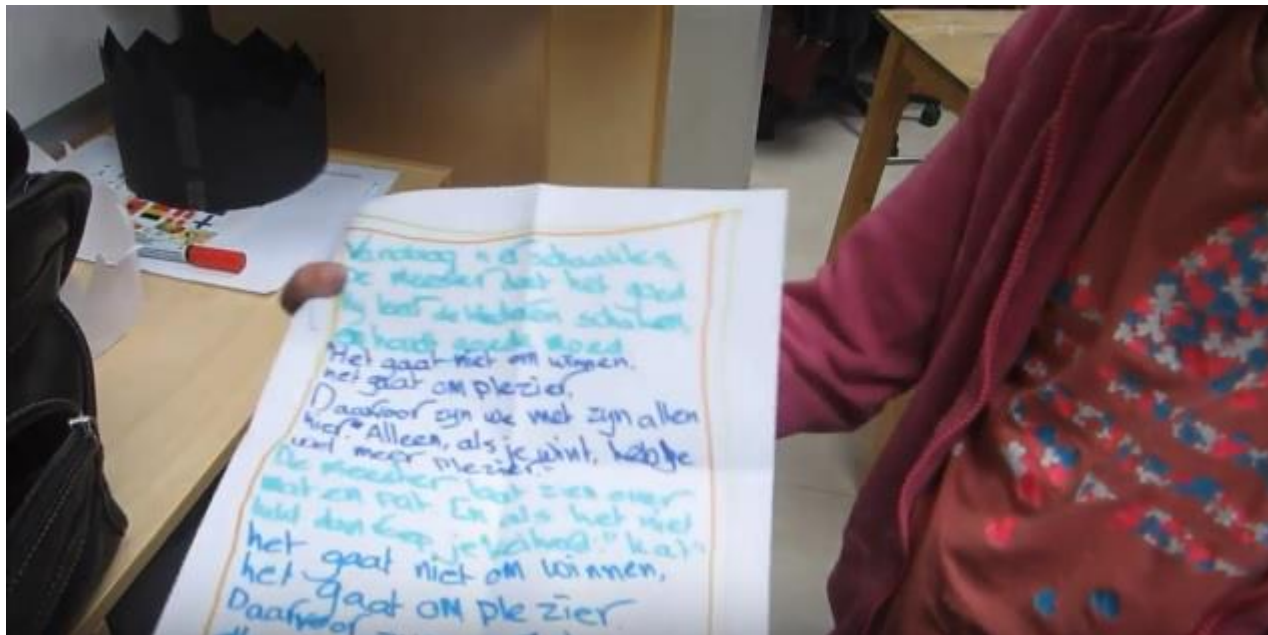 Vandaag is d' schaakles
De meester doet het goed
Hij leert de kinderen schaken
en houdt goede moed
"Het gaat niet om winnen,
het gaat om plezier,
Daarvoor zijn we met zijn allen
hier" Alleen, als je wint, heb je
wel meer plezier."
De meester laat zien over
mat en pat. En als het niet
lukt dan roep je keihard: "
het gaat niet om winnen,
het gaat om plezier
Daarvoor